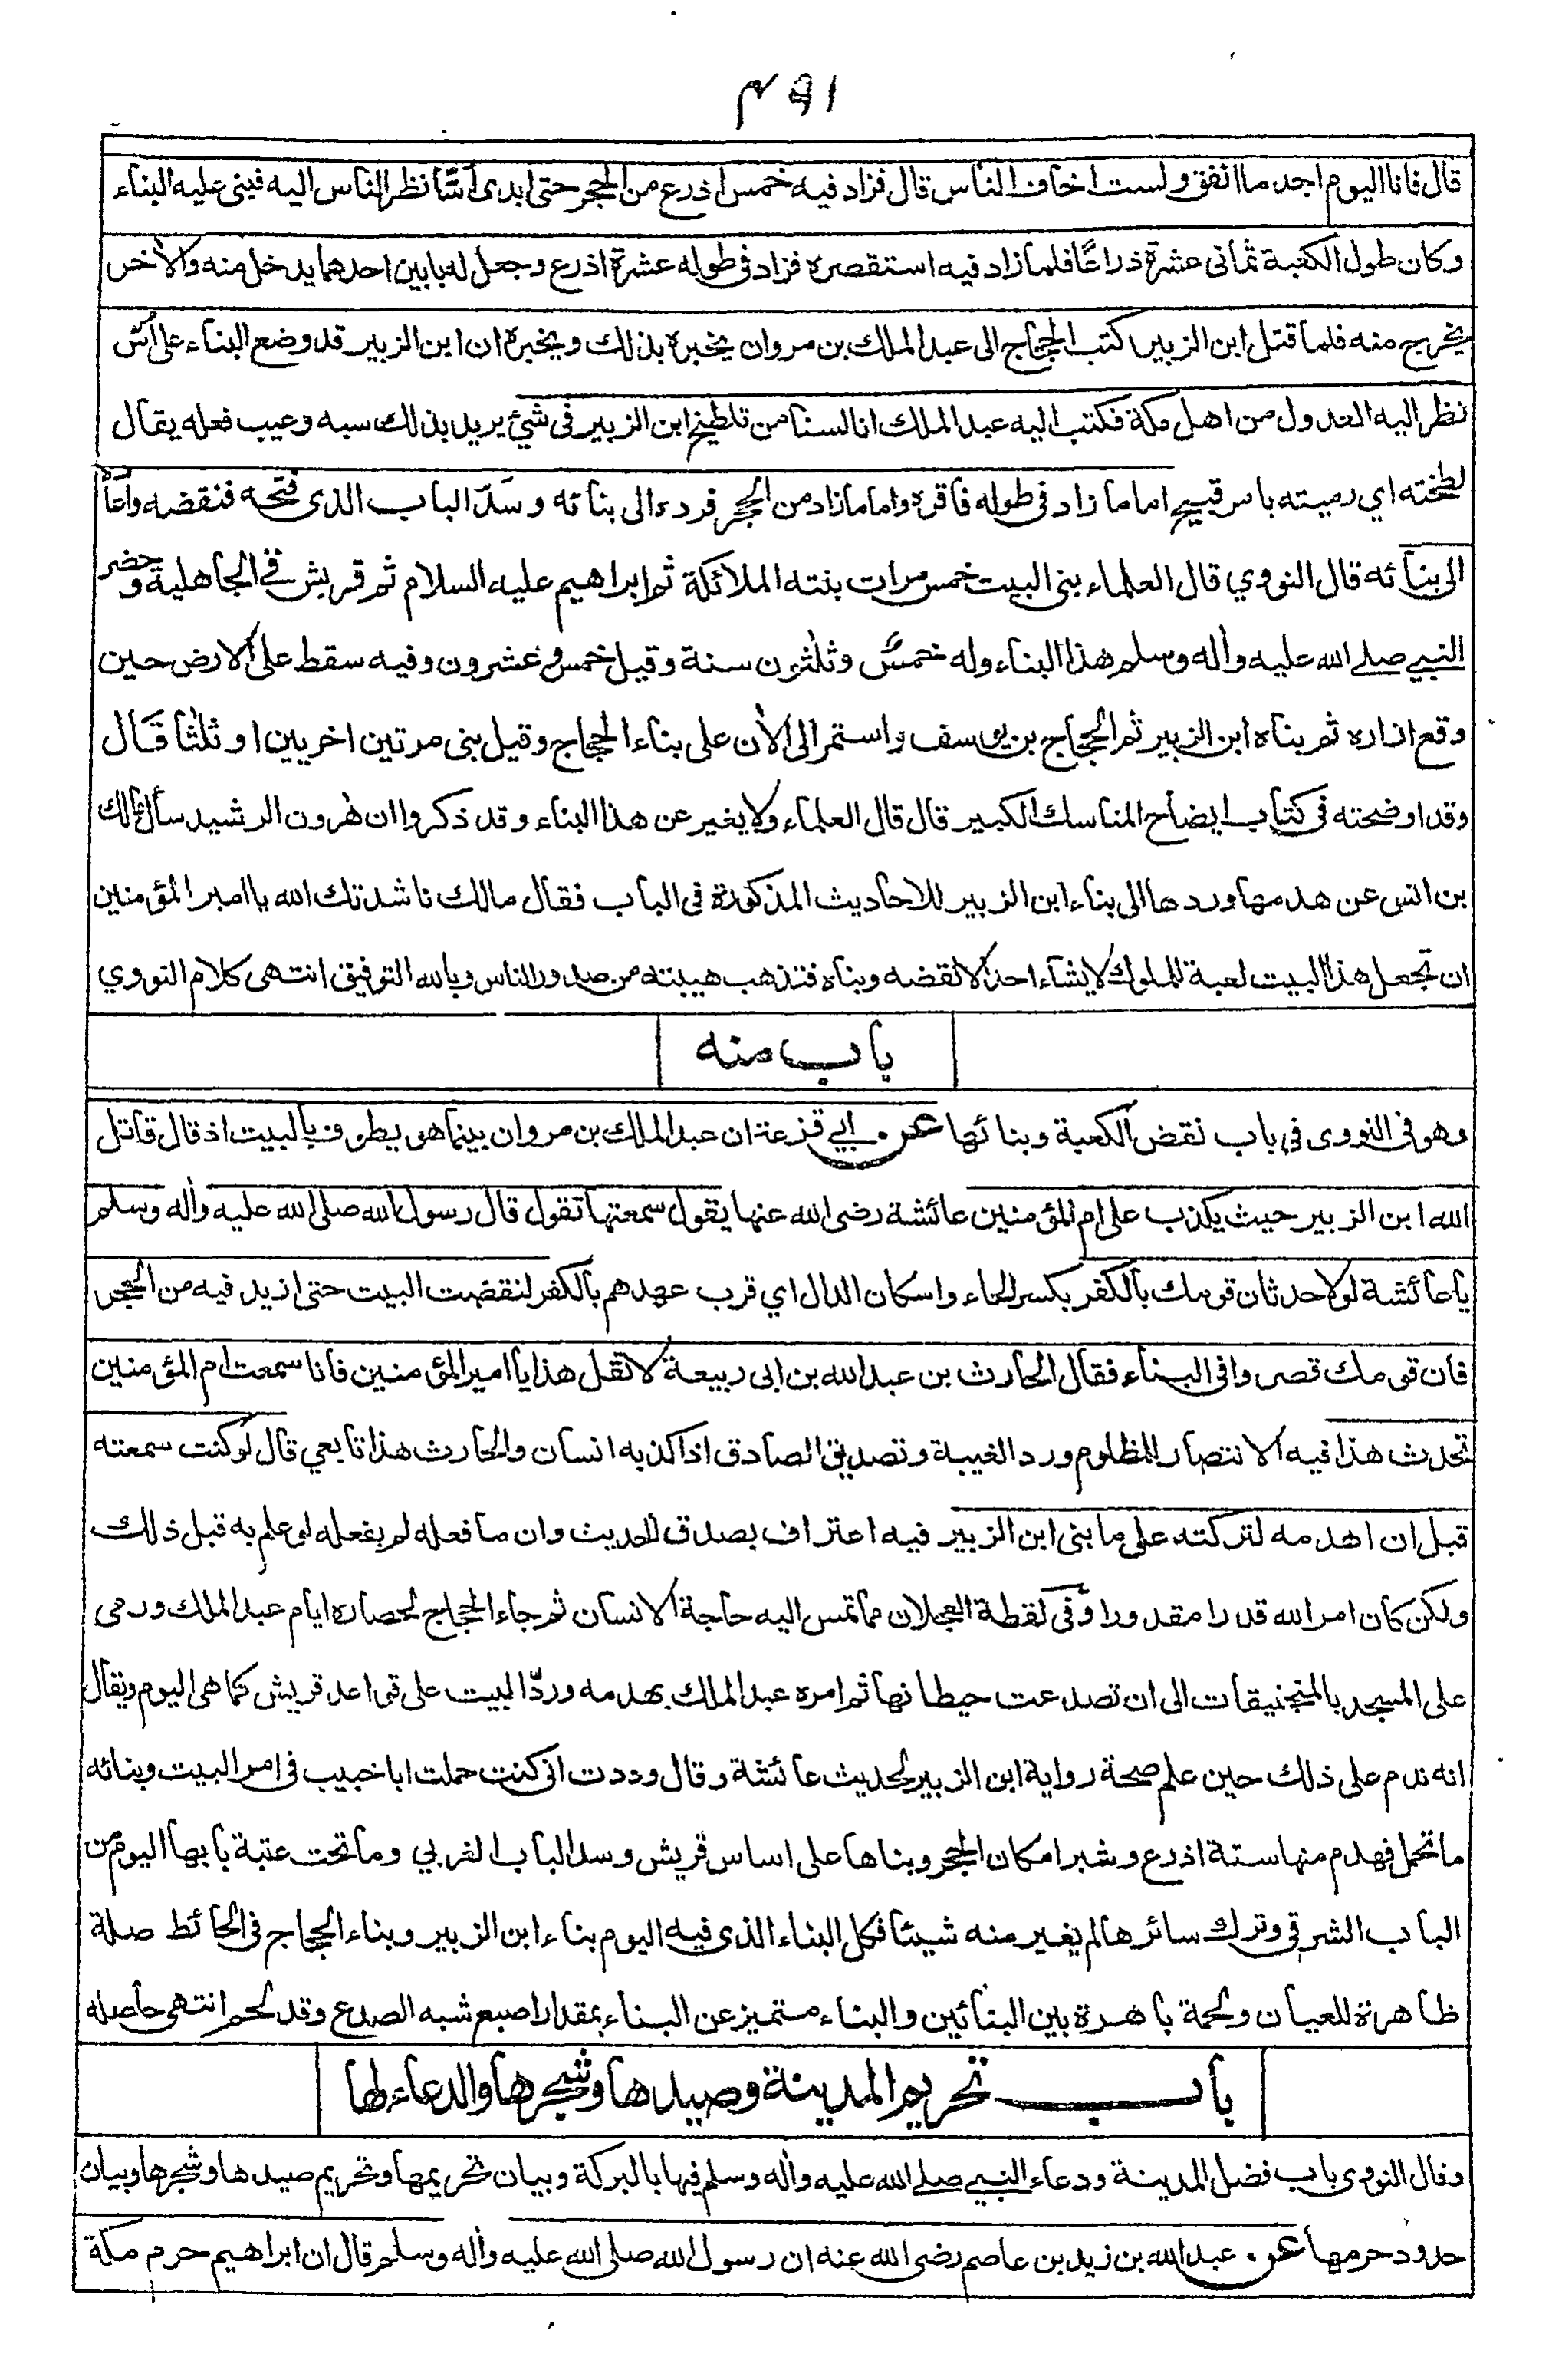 ٤٩١
قال فانا اليوم اجد ما انفق ولست اخاف الناس قال فزاد فيه خمس اذرع من الحجر حتى ابدى اُسًّا نظر الناس اليه فبنى عليه البناء
وكان طول الكعبة ثمانى عشرة ذراعًا فلما زاد فيه استقصره فزاد فى طوله عشرة اذرع وجعل له بابين احدهما يدخل منه والاٰخر
يخرج منه فلما قتل ابن الزبير كتب الحجاج الى عبد الملك بن مروان يخبره بذلك ويخبره ان ابن الزبير قد وضع البناء على اُسّ
نظر اليه العدول من اهل مكة فكتب اليه عبد الملك انا لسنا من تلطيخ ابن الزبير فى شئ يريد بذلك سبه وعيب فعله يقال
لطخته اي رميته بامر قبيح اما ما زاد فى طوله فاقره واما ما زاد من الحجر فرده الى بنائه وسَدّ الباب الذى فتحه فنقضه واعاده
الى بنائه قال النووي قال العلماء بنى البيت خمس مرات بنته الملائكة ثم ابراهيم عليه السلام ثم قريش فى الجاهلية وحضر
النبي صلے الله عليه واٰله وسلم هذا البناء وله خمسٌ وثلٰثون سنة وقيل خمس وعشرون وفيه سقط على الارض حين
وقع ازاره ثم بناه ابن الزبير ثم الحجاج بن يوسف واستمر الى الاٰن على بناء الحجاج وقيل بنى مرتين اخريين او ثلٰثا قَال
وقد اوضحته فى كتاب ايضاح المناسك الكبير قال قال العلماء ولا يغير عن هذا البناء وقد ذكروا ان هٰرون الرشيد سأل مالك
بن انس عن هدمها وردها الى بناء ابن الزبير للاحاديث المذكورة فى الباب فقال مالك ناشدتك الله يا امير المؤمنين
ان تجعل هذا البيت لعبة للملوك لا يشاء احد الا نقضه وبناه فتذهب هيبته من صدور الناس وبالله التوفيق انتهى كلام النووي
باب منه
وهو فى النووى فى باب نقض الكعبة وبنائها عن ابي قزعة ان عبد الملك بن مروان بينما هو يطوف بالبيت اذ قال قاتل
الله ابن الزبير حيث يكذب على ام المؤمنين عائشة رضى الله عنها يقول سمعتها تقول قال رسول الله صلى الله عليه واٰله وسلم
يا عائشة لولا حدثان قومك بالكفر بكسر الحاء واسكان الدال اي قرب عهدهم بالكفر لنقضت البيت حتى ازيد فيه من الحجر
فان قومك قصروا فى البناء فقال الحارث بن عبد الله بن ابى ربيعة لا تقل هذا يا امير المؤمنين فانا سمعت ام المؤمنين
تحدث هذا فيه الانتصار للمظلوم ورد الغيبة وتصديق الصادق اذا كذبه انسان والحارث هذا تابعي قال لو كنت سمعته
قبل ان اهدمه لتركته على ما بنى ابن الزبير فيه اعتراف بصدق الحديث وان ما فعله لم يفعله لو علم به قبل ذلك
ولكن كان امر الله قدرا مقدورا وفى لقطة العجلان مما تمس اليه حاجة الانسان ثم جاء الحجاج لحصاره ايام عبد الملك ورمى
على المسجد بالمنجنيقات الى ان تصدعت حيطانها ثم امره عبد الملك بهدمه وردّ البيت على قواعد قريش كما هى اليوم ويقال
انه ندم على ذلك حين علم صحة رواية ابن الزبير لحديث عائشة وقال وددت انى كنت حملت ابا خبيب فى امر البيت وبنائه
ما تحمل فهدم منها ستة اذرع وشبرا مكان الحجر وبناها على اساس قريش وسد الباب الغربي وما تحت عتبة بابها اليوم من
الباب الشرقى وترك سائرها لم يغير منه شيئا فكل البناء الذى فيه اليوم بناء ابن الزبير وبناء الحجاج فى الحائط صلة
ظاهرة للعيان ولحمة باهرة بين البنائين والبناء متميز عن البناء بمقدار اصبع شبه الصدع وقد لحم انتهى حاصله
باب تحريم المدينة وصيدها وشجرها والدعاء لها
وقال النووى باب فضل المدينة ودعاء النبي صلے الله عليه واٰله وسلم فيها بالبركة وبيان تحريمها وتحريم صيدها وشجرها وبيان
حدود حرمها عن عبد الله بن زيد بن عاصم رضى الله عنه ان رسول الله صلى الله عليه واٰله وسلم قال ان ابراهيم حرم مكة